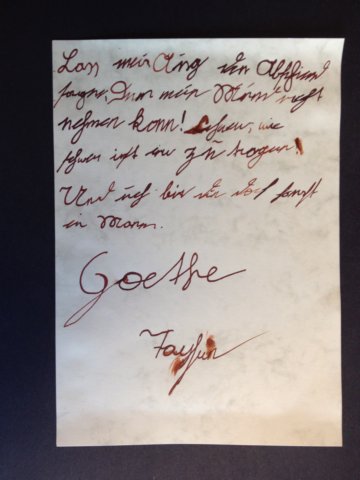 Lass mein Aug den Abschied
sagen, Den mein Mund nicht
nehmen kann! Schwer, wie
schwer ist er zu tragen!
Und ich bin doch sonst
ein Mann.
Goethe
Tayfun